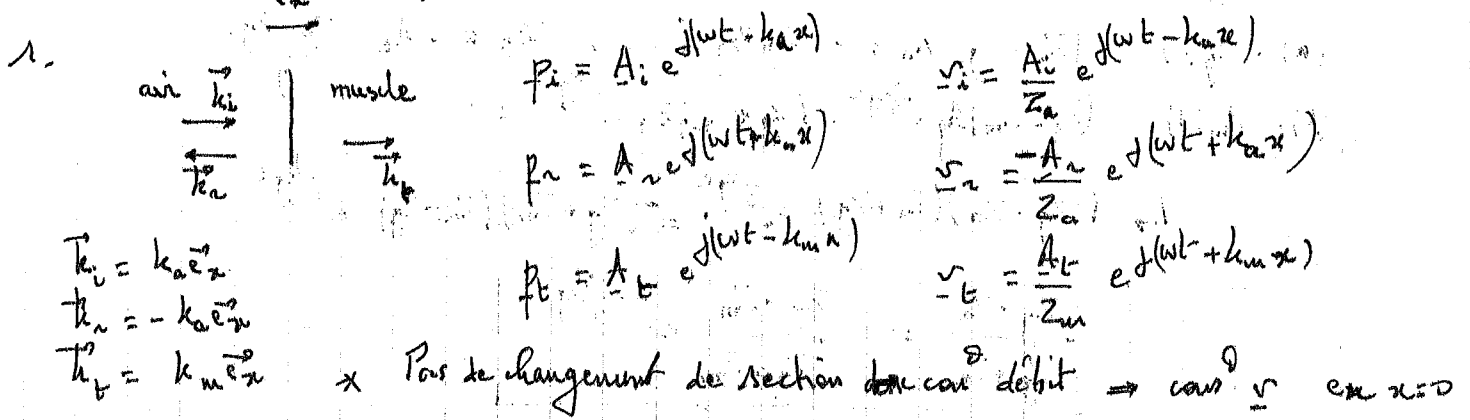 1.
air $\vec{k_i}$ | muscle
$\vec{k_r}$ $\vec{k_t}$
$p_i = \underline{A}_i e^{j(\omega t - k_a x)}$ $\underline{v}_i = \frac{\underline{A}_i}{Z_a} e^{j(\omega t - k_a x)}$
$p_r = \underline{A}_r e^{j(\omega t + k_a x)}$ $\underline{v}_r = \frac{-\underline{A}_r}{Z_a} e^{j(\omega t + k_a x)}$
$p_t = \underline{A}_t e^{j(\omega t - k_m x)}$ $\underline{v}_t = \frac{\underline{A}_t}{Z_m} e^{j(\omega t + k_m x)}$
$\vec{k_i} = k_a \vec{e_x}$
$\vec{k_r} = - k_a \vec{e_x}$
$\vec{k_t} = k_m \vec{e_x}$
× Pas de changement de section donc cons° débit ⇒ cons° $\underline{v}$ en x=0